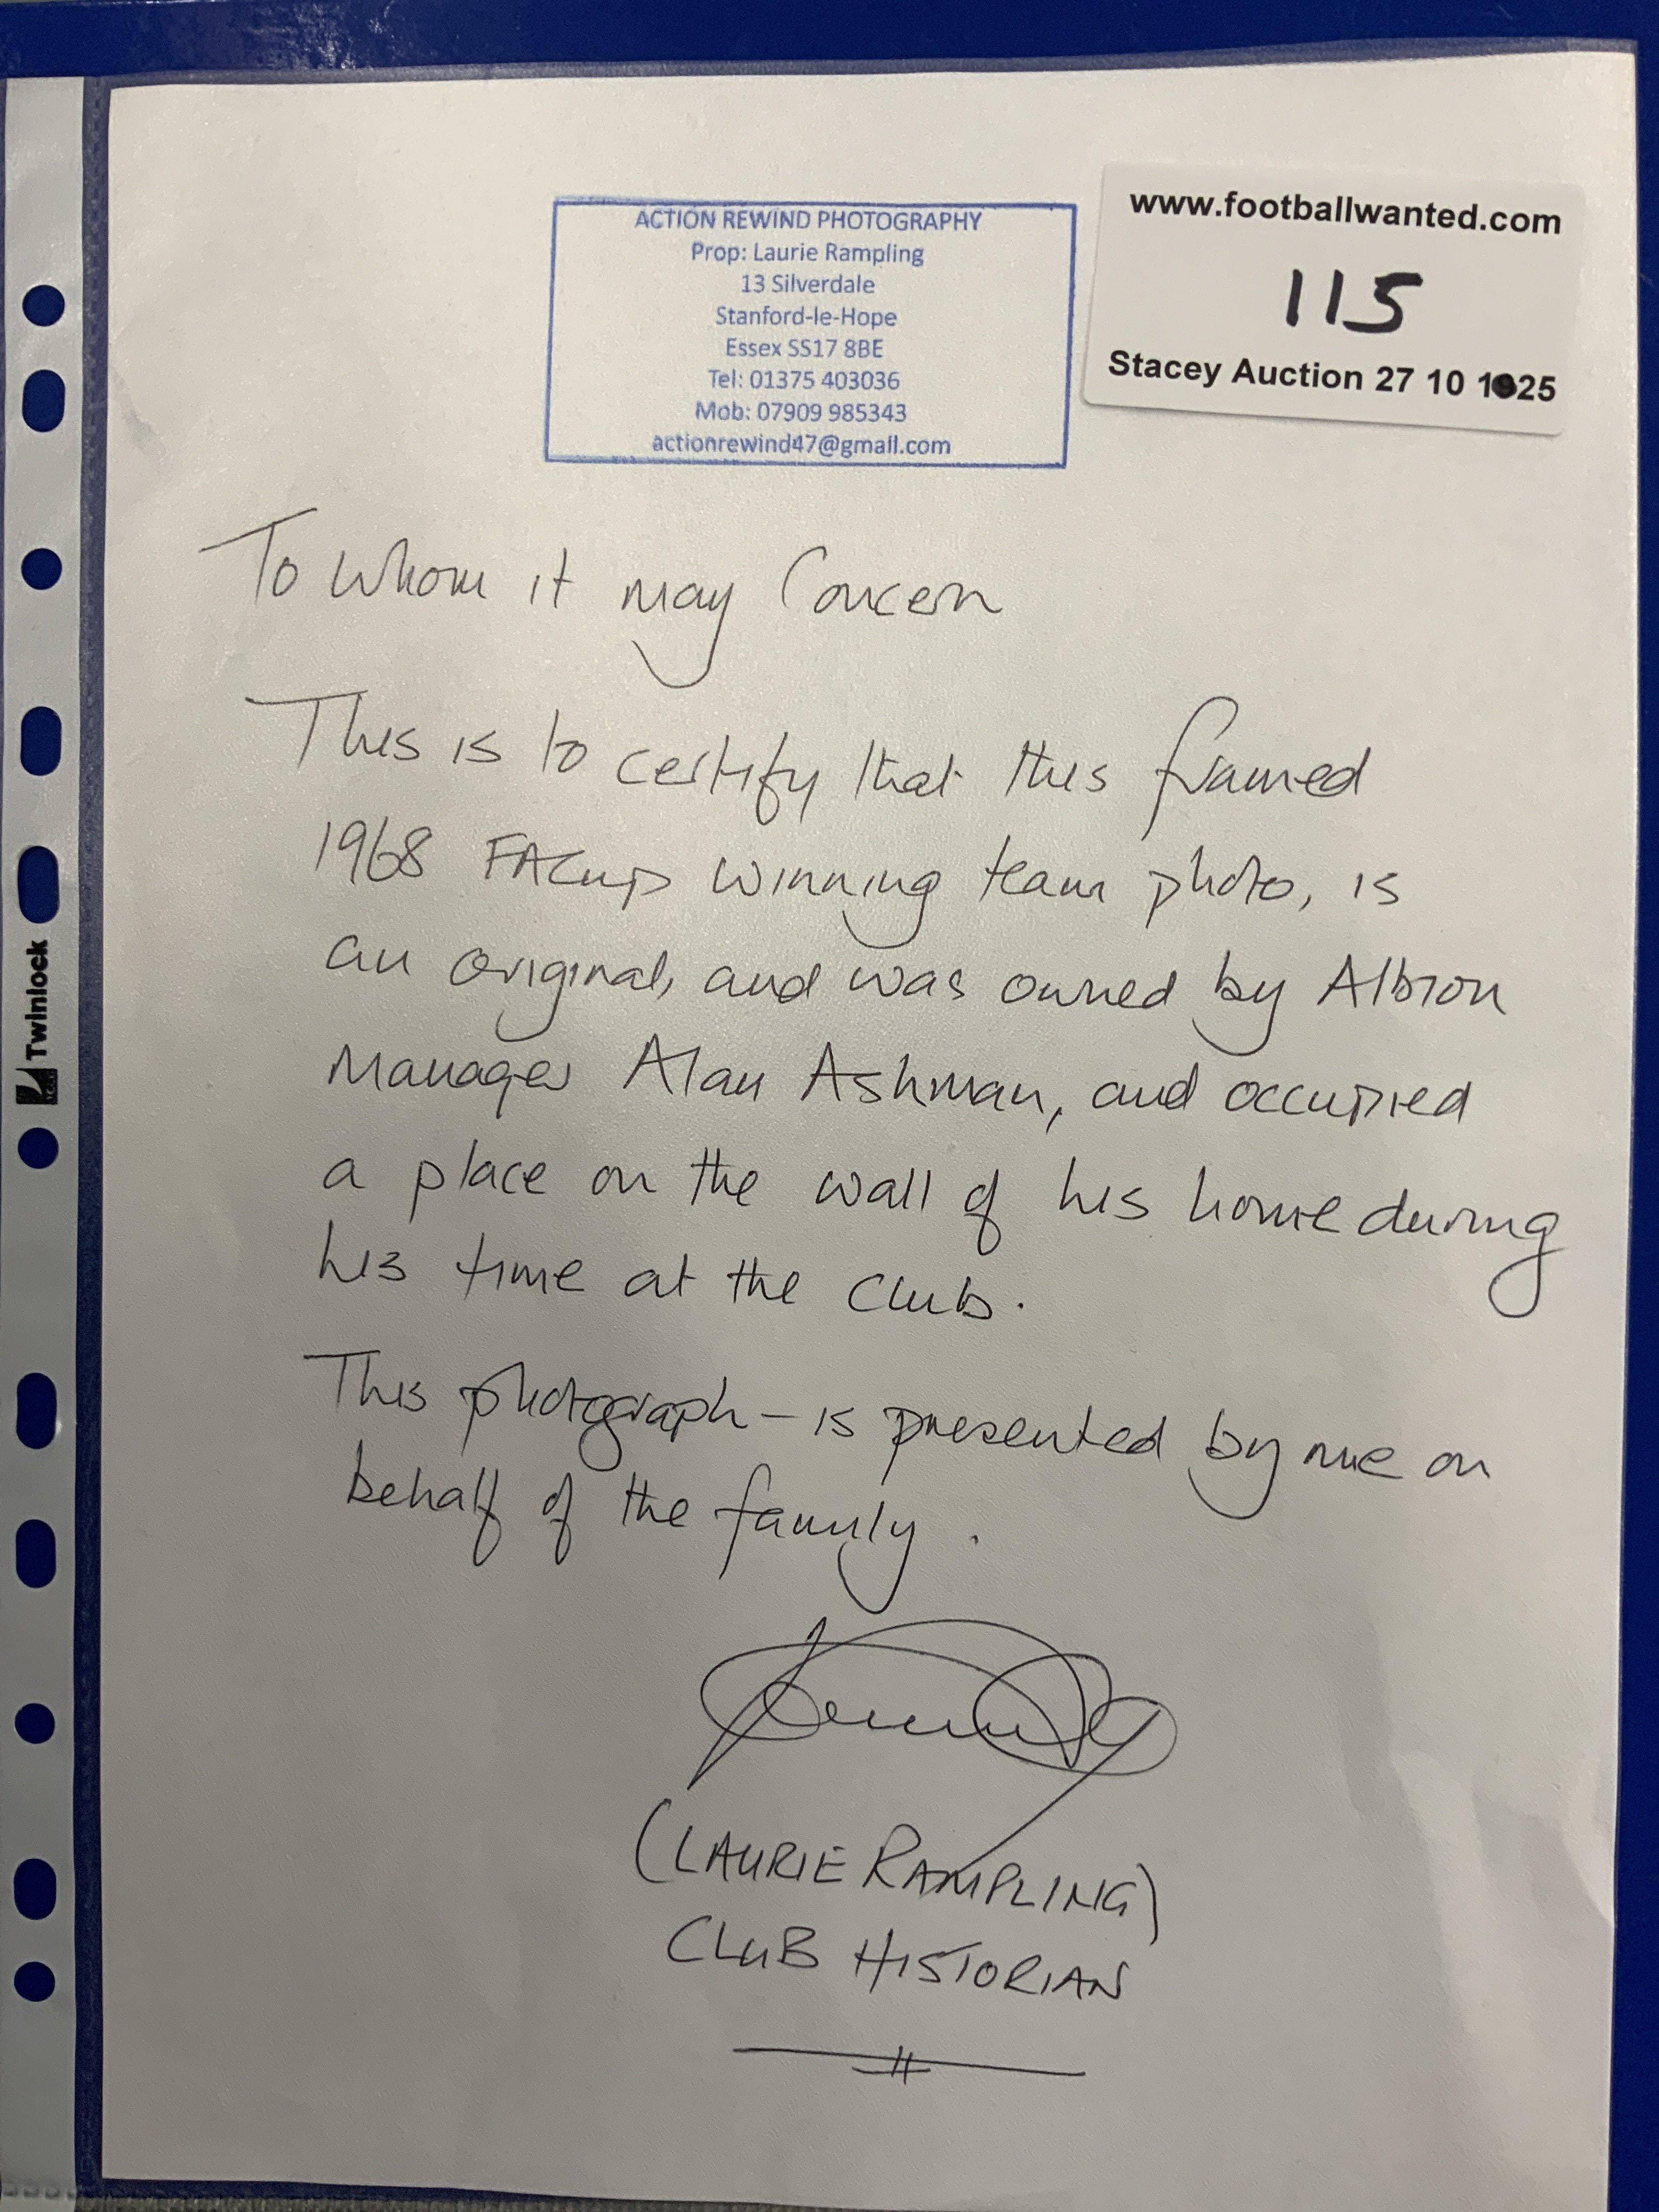 ACTION REWIND PHOTOGRAPHY
Prop: Laurie Rampling
13 Silverdale
Stanford-le-Hope
Essex SS17 8BE
Tel: 01375 403036
Mob: 07909 985343
actionrewind47@gmail.com
www.footballwanted.com
115
Stacey Auction 27 10 1925
To Whom it may Concern
This is to certify that this framed
1968 FACup Winning team photo, is
an original, and was owned by Albion
Manager Alan Ashman, and occupied
a place on the wall of his home during
his time at the Club.
This photograph - is presented by me on
behalf of the family.
(LAURIE RAMPLING)
CLUB HISTORIAN
Twinlock